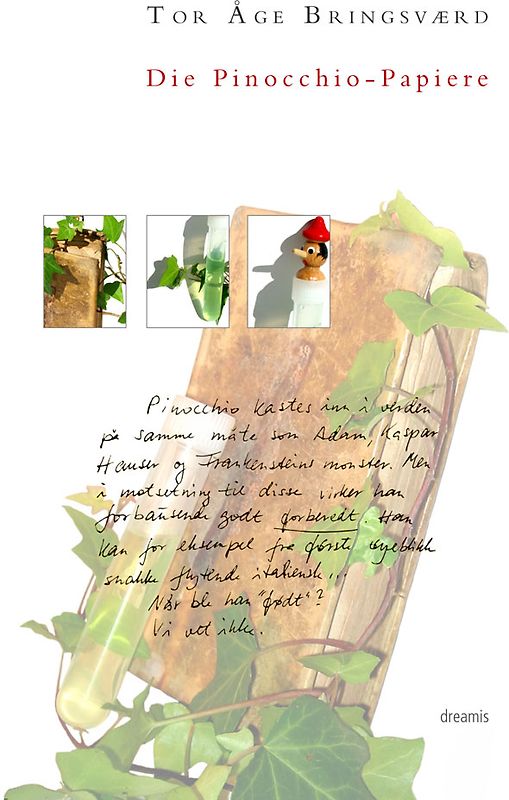 TOR ÅGE BRINGSVÆRD
Die Pinocchio-Papiere
Pinocchio kastes inn i verden
på samme måte som Adam, Kaspar
Hauser og Frankensteins monster. Men
i motsetning til disse virker han
forbausende godt forberedt. Han
kan for eksempel fra første øyeblikk
snakke flytende italiensk...
Når ble han "født"?
Vi vet ikke.
dreamis